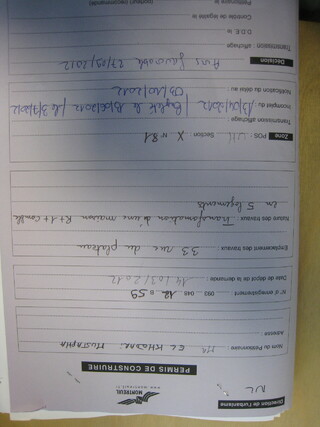 Direction de l'urbanisme
NL
MONTREUIL
www.montreuil.fr
PERMIS DE CONSTRUIRE
Nom du Pétitionnaire : Mr EL KHADAR MUSTAPHA
Adresse :
N° d'enregistrement 093 048 12 B 59
Date de dépôt de la demande : 14/03/2012
Emplacement des travaux : 33 rue du plateau
Nature des travaux : Transformation d'une maison R+1+comble
en 5 logements
Zone POS : UH Section : X n° 81
Transmission affichage
Incomplet du
Notification du délai au 03/10/2012
Décision Avis favorable 27/09/2012
Transmission affichage
D.D.E. le
Contrôle de légalité le
Pétitionnaire le